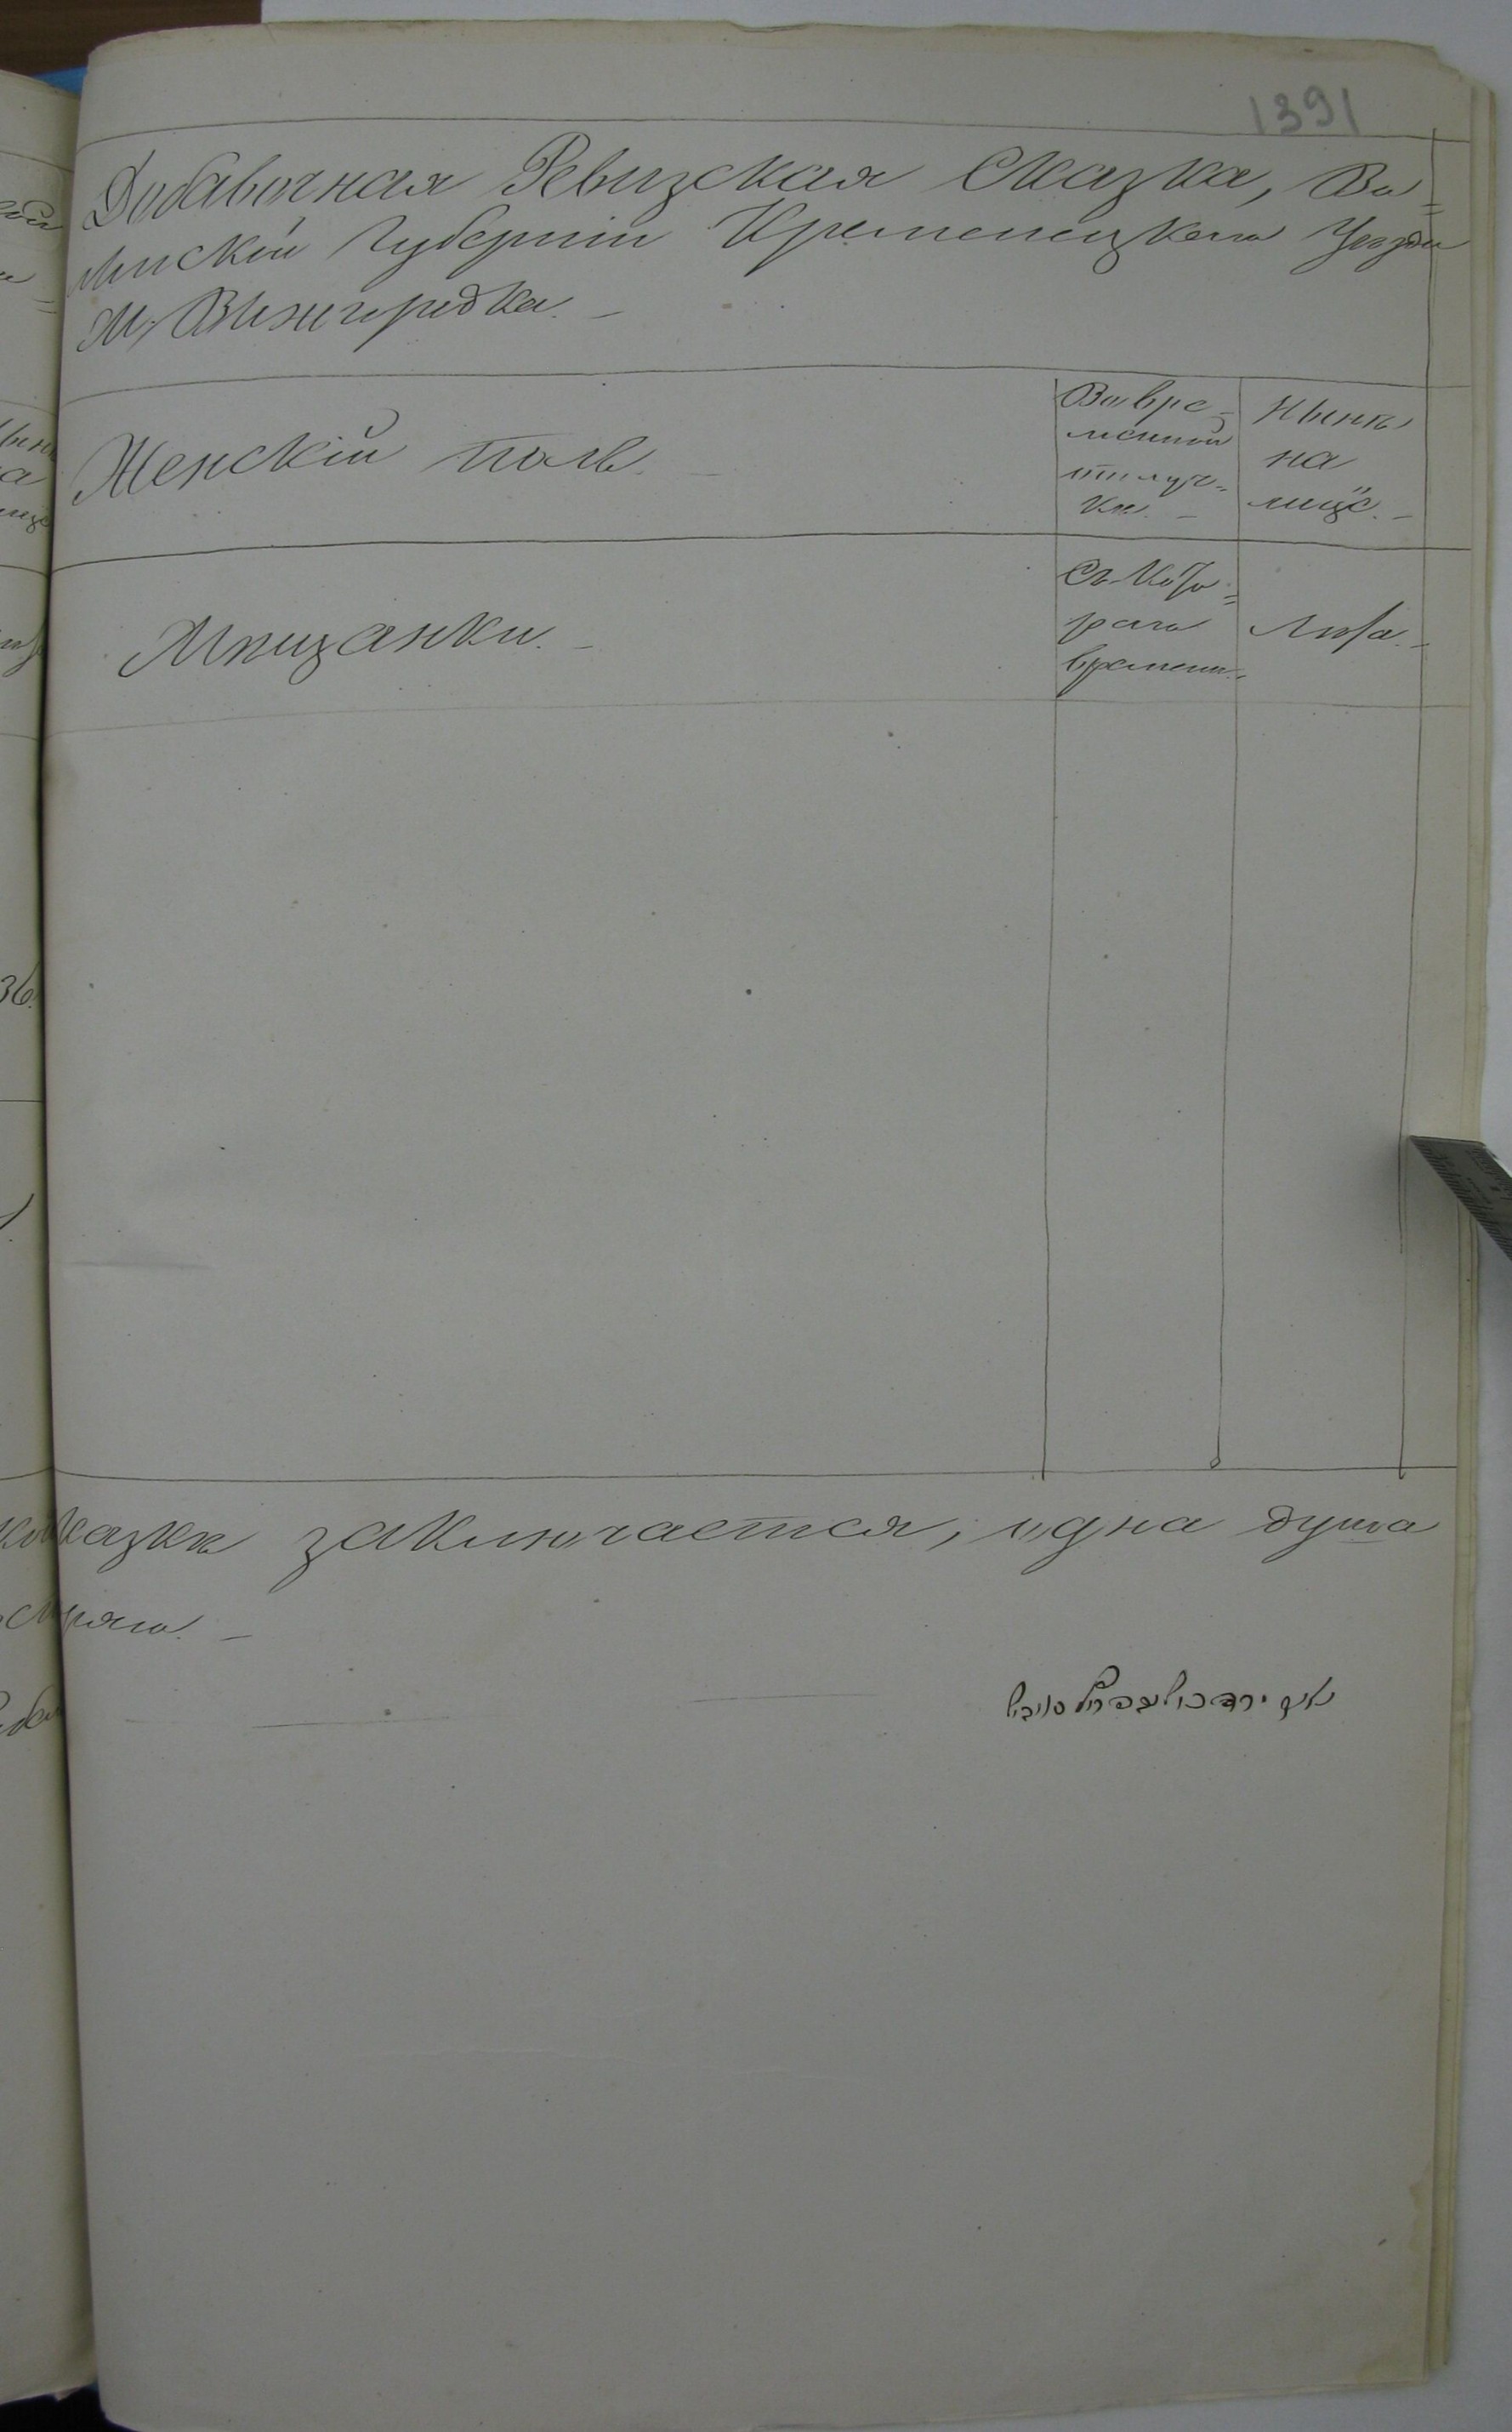 1391
Добавочная Ревизская Сказка, Во=
лынской Губерніи Кременецкаго Уезда
М, Вижгородка. —
Женскій полъ. —
Во вре=
менной
отлуч=
ке. —
Ныне
на
лице. —
Мещанки. —
Съ кото=
раго
времени.
Лета. —
сказке заключается, одна душа
36